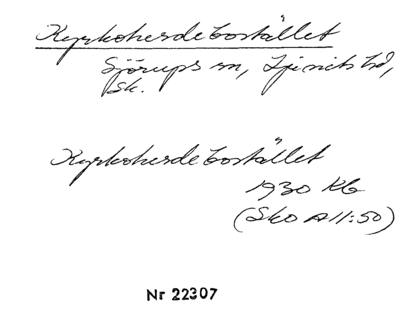 Kyrkoherdebostället
Sjörups sn, Ljunits hd,
Sk.
Kyrkoherdebostället
1930 Kb
(Sko A11:50)
Nr 22307